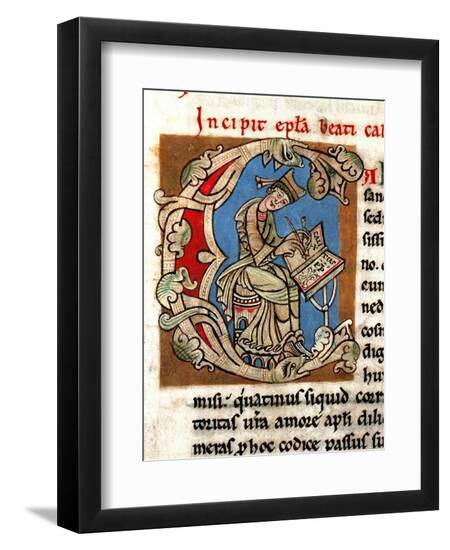 Incipit epła beati cal
san
sed
sissi
no.
eum
ned
cosn
dig
hu
misi. q̃atinus siquid corr
toritas ur̃a amore apłi dili
meras p hoc codice passus su